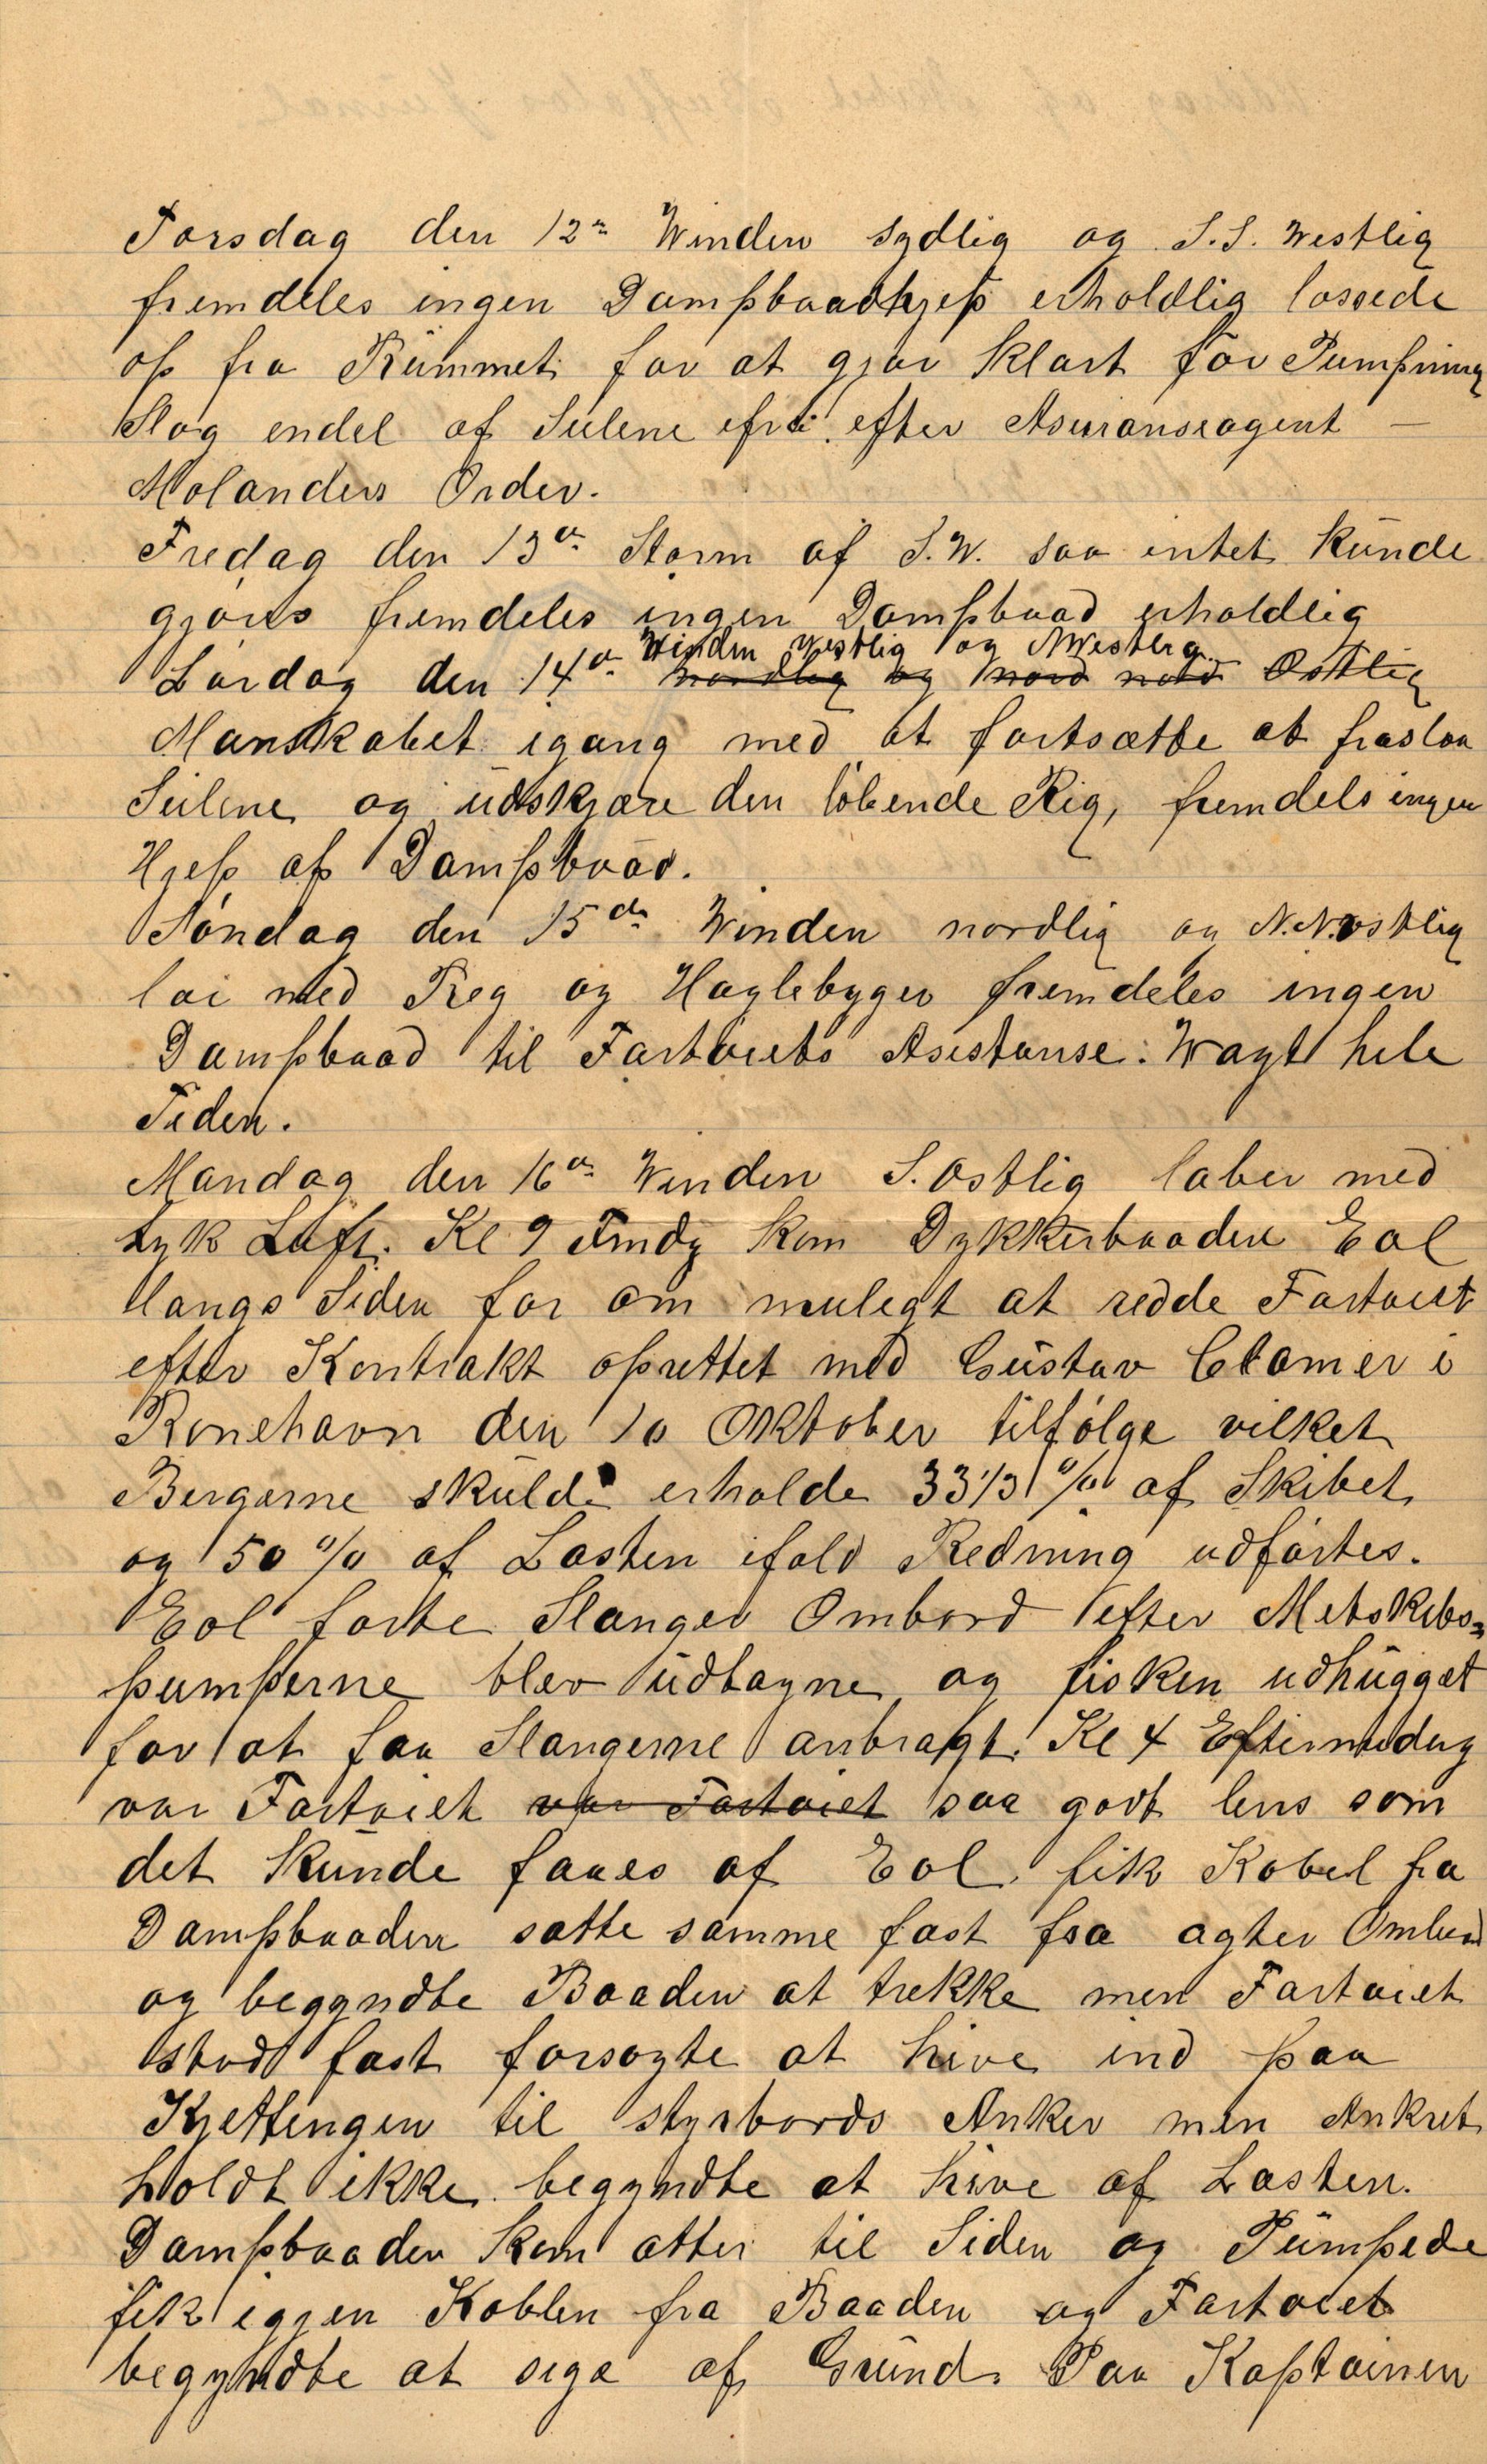 Torsdag den 12te Winden sydlig og S.S. Westlig
fremdeles ingen Dampbaadhjelp erholdlig lossede
op fra Rummet for at gjør klart for Pumpning
Slog endel af Seilene ifra efter Asuranseagent —
Molanders Order.
Fredag den 13de Storm af S.W. saa intet kunde
gjøres fremdeles ingen Dampbaad erholdlig
Winden Westlig og NWestlig
Lørdag den 14de nordlig og nord nord Ostlig
Manskabet igang med at fortsætte at fraslaa
Seilene og udskjære den løbende Rig, fremdels ingen
Hjelp af Dampbaad.
Søndag den 15de Winden nordlig og N.N.ostlig
lai med Reg og Haglebyger fremdeles ingen
Dampbaad til Fartøiets Asistanse. Wagt hele
Tiden.
Mandag den 16de Winden S.Ostlig laber med
tyk Luft. Kl 9 Fmdg kom Dykkerbaaden Eol
langs Siden for om muligt at redde Fartøiet
efter Kontrakt oprettet med Gustav Clamer i
Ronehavn den 10 Oktober tilfølge vilket
Bergerne skulde erholde 33 1/3 % af Skibet
og 50 % af Lasten ifald Redning udførtes.
Eol førte Slanger Ombord efter At Skibs-
pumperne blev udtagne og fisken udhugget
for at faa Slangerne anbragt. Kl 4 Eftermidag
var Fartøiet var Fartøiet saa godt lens som
det kunde faaes af Eol, fik Kabel fra
Dampbaaden satte samme fast fra agter Ombord
og begyndte Baaden at trekke men Fartøiet
stod fast forsøgte at hive ind paa
Kjettingen til styrbords Anker men Ankret
holdt ikke begyndte at hive af Lasten.
Dampbaaden kom atter til Siden og Pumpede
fik igjen Kablen fra Baaden og Fartøiet
begyndte at sige af Grund. Paa Kaptainen